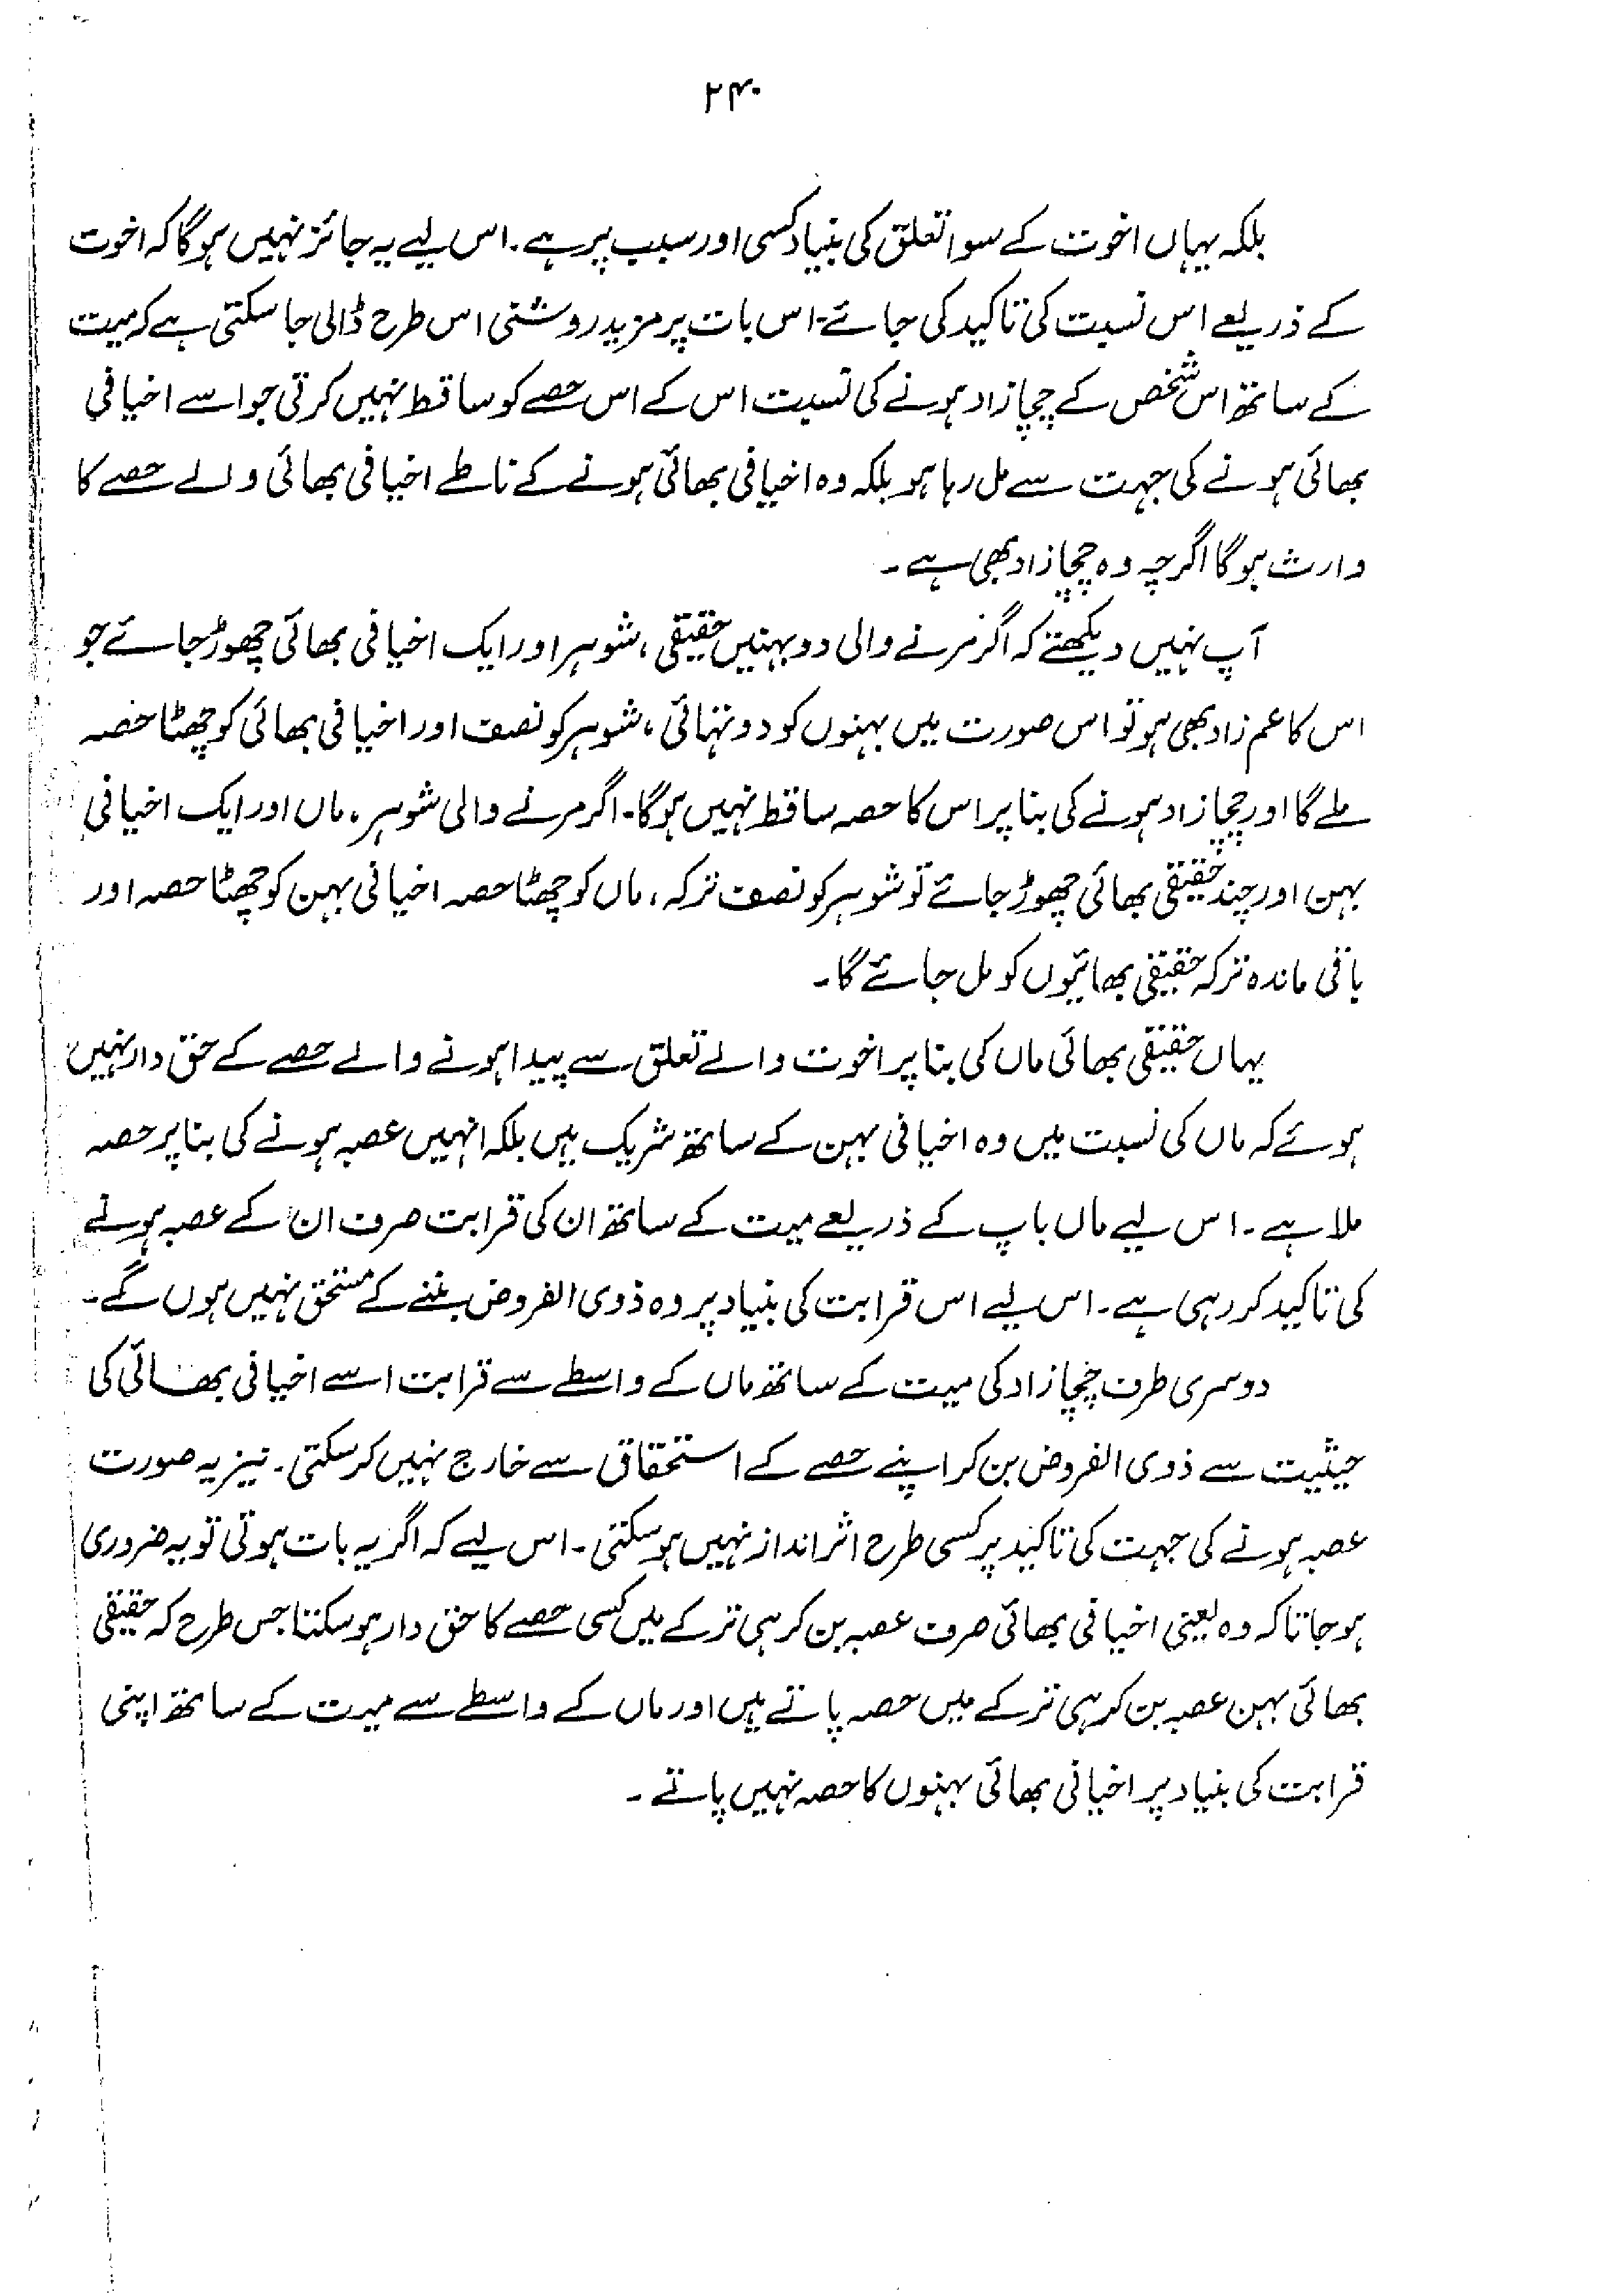 ۲۴۰
بلکہ یہاں اخوت کے سوا تعلق کی بنیاد کسی اور سبب پر ہے۔ اس لیے یہ جائز نہیں ہوگا کہ اخوت
کے ذریعے اس نسبت کی تاکید کی جائے۔ اس بات پر مزید روشنی اس طرح ڈالی جا سکتی ہے کہ میت
کے ساتھ اس شخص کے چچازاد ہونے کی نسبت اس کے اس حصے کو ساقط نہیں کرتی جو اسے اخیافی
بھائی ہونے کی جہت سے مل رہا ہو بلکہ وہ اخیافی بھائی ہونے کے ناطے اخیافی بھائی والے حصے کا
وارث ہوگا اگرچہ وہ چچازاد بھی ہے۔
آپ نہیں دیکھتے کہ اگر مرنے والی دو بہنیں حقیقی، شوہر اور ایک اخیافی بھائی چھوڑ جائے جو
اس کا عم زاد بھی ہو تو اس صورت میں بہنوں کو دو تہائی، شوہر کو نصف اور اخیافی بھائی کو چھٹا حصہ
ملے گا اور چچازاد ہونے کی بنا پر اس کا حصہ ساقط نہیں ہوگا۔ اگر مرنے والی شوہر، ماں اور ایک اخیافی
بہن اور چند حقیقی بھائی چھوڑ جائے تو شوہر کو نصف ترکہ، ماں کو چھٹا حصہ اخیافی بہن کو چھٹا حصہ اور
باقی ماندہ ترکہ حقیقی بھائیوں کو مل جائے گا۔
یہاں حقیقی بھائی ماں کی بنا پر اخوت والے تعلق سے پیدا ہونے والے حصے کے حق دار نہیں
ہوئے کہ ماں کی نسبت میں وہ اخیافی بہن کے ساتھ شریک ہیں بلکہ انہیں عصبہ ہونے کی بنا پر حصہ
ملا ہے۔ اس لیے ماں باپ کے ذریعے میت کے ساتھ ان کی قرابت صرف ان کے عصبہ ہونے
کی تاکید کر رہی ہے۔ اس لیے اس قرابت کی بنیاد پر وہ ذوی الفروض بننے کے مستحق نہیں ہوں گے۔
دوسری طرف چچازاد کی میت کے ساتھ ماں کے واسطے سے قرابت اسے اخیافی بھائی کی
حیثیت سے ذوی الفروض بن کر اپنے حصے کے استحقاق سے خارج نہیں کر سکتی۔ نیز یہ صورت
عصبہ ہونے کی جہت کی تاکید پر کسی طرح اثر انداز نہیں ہو سکتی۔ اس لیے کہ اگر یہ بات ہوتی تو یہ ضروری
ہو جاتا کہ وہ یعنی اخیافی بھائی صرف عصبہ بن کر ہی ترکے میں کسی حصے کا حق دار ہو سکتا جس طرح کہ حقیقی
بھائی بہن عصبہ بن کر ہی ترکے میں حصہ پاتے ہیں اور ماں کے واسطے سے میت کے ساتھ اپنی
قرابت کی بنیاد پر اخیافی بھائی بہنوں کا حصہ نہیں پاتے۔